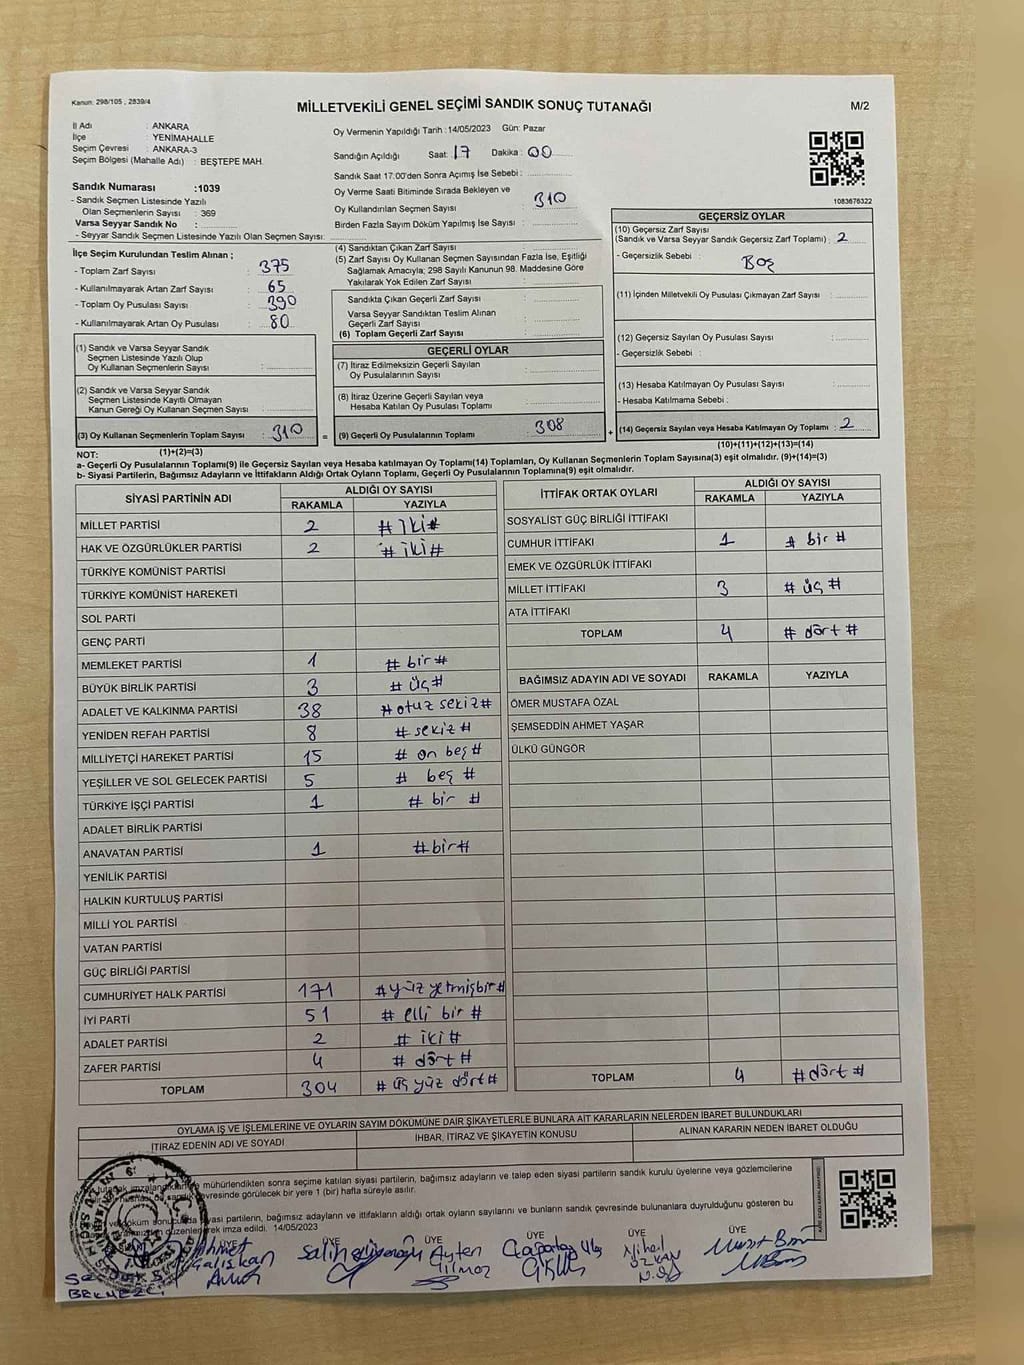 Kanun: 298/105 , 2839/4
MİLLETVEKİLİ GENEL SEÇİMİ SANDIK SONUÇ TUTANAĞI
M/2
İl Adı : ANKARA
İlçe : YENİMAHALLE
Seçim Çevresi : ANKARA-3
Seçim Bölgesi (Mahalle Adı) : BEŞTEPE MAH.
Sandık Numarası :1039
- Sandık Seçmen Listesinde Yazılı
Olan Seçmenlerin Sayısı : 369
Varsa Seyyar Sandık No :
- Seyyar Sandık Seçmen Listesinde Yazılı Olan Seçmen Sayısı:
İlçe Seçim Kurulundan Teslim Alınan ;
- Toplam Zarf Sayısı : 375
- Kullanılmayarak Artan Zarf Sayısı : 65
- Toplam Oy Pusulası Sayısı : 390
- Kullanılmayarak Artan Oy Pusulası : 80
(1) Sandık ve Varsa Seyyar Sandık
Seçmen Listesinde Yazılı Olup
Oy Kullanan Seçmenlerin Sayısı :
(2) Sandık ve Varsa Seyyar Sandık
Seçmen Listesinde Kayıtlı Olmayan
Kanun Gereği Oy Kullanan Seçmen Sayısı :
(3) Oy Kullanan Seçmenlerin Toplam Sayısı : 310
Oy Vermenin Yapıldığı Tarih : 14/05/2023 Gün: Pazar
Sandığın Açıldığı Saat: 17 Dakika : 00
Sandık Saat 17:00'den Sonra Açımış İse Sebebi :
Oy Verme Saati Bitiminde Sırada Bekleyen ve
Oy Kullandırılan Seçmen Sayısı : 310
Birden Fazla Sayım Döküm Yapılmış İse Sayısı :
(4) Sandıktan Çıkan Zarf Sayısı :
(5) Zarf Sayısı Oy Kullanan Seçmen Sayısından Fazla İse, Eşitliği
Sağlamak Amacıyla; 298 Sayılı Kanunun 98. Maddesine Göre
Yakılarak Yok Edilen Zarf Sayısı :
Sandıkta Çıkan Geçerli Zarf Sayısı :
Varsa Seyyar Sandıktan Teslim Alınan
Geçerli Zarf Sayısı :
(6) Toplam Geçerli Zarf Sayısı :
GEÇERLİ OYLAR
(7) İtiraz Edilmeksizin Geçerli Sayılan
Oy Pusulalarının Sayısı :
(8) İtiraz Üzerine Geçerli Sayılan veya
Hesaba Katılan Oy Pusulası Toplamı :
= (9) Geçerli Oy Pusulalarının Toplamı : 308
1083676322
GEÇERSİZ OYLAR
(10) Geçersiz Zarf Sayısı
(Sandık ve Varsa Seyyar Sandık Geçersiz Zarf Toplamı) : 2
- Geçersizlik Sebebi : Boş
(11) İçinden Milletvekili Oy Pusulası Çıkmayan Zarf Sayısı :
(12) Geçersiz Sayılan Oy Pusulası Sayısı :
- Geçersizlik Sebebi :
(13) Hesaba Katılmayan Oy Pusulası Sayısı :
- Hesaba Katılmama Sebebi :
+ (14) Geçersiz Sayılan veya Hesaba Katılmayan Oy Toplamı : 2
(10)+(11)+(12)+(13)=(14)
NOT: (1)+(2)=(3)
a- Geçerli Oy Pusulalarının Toplamı(9) ile Geçersiz Sayılan veya Hesaba katılmayan Oy Toplamı(14) Toplamları, Oy Kullanan Seçmenlerin Toplam Sayısına(3) eşit olmalıdır. (9)+(14)=(3)
b- Siyasi Partilerin, Bağımsız Adayların ve İttifakların Aldığı Ortak Oyların Toplamı, Geçerli Oy Pusulalarının Toplamına(9) eşit olmalıdır.
SİYASİ PARTİNİN ADI ALDIĞI OY SAYISI
RAKAMLA YAZIYLA
MİLLET PARTİSİ 2 # iki #
HAK VE ÖZGÜRLÜKLER PARTİSİ 2 # iki #
TÜRKİYE KOMÜNİST PARTİSİ
TÜRKİYE KOMÜNİST HAREKETİ
SOL PARTİ
GENÇ PARTİ
MEMLEKET PARTİSİ 1 # bir #
BÜYÜK BİRLİK PARTİSİ 3 # üç #
ADALET VE KALKINMA PARTİSİ 38 # otuz sekiz #
YENİDEN REFAH PARTİSİ 8 # sekiz #
MİLLİYETÇİ HAREKET PARTİSİ 15 # on beş #
YEŞİLLER VE SOL GELECEK PARTİSİ 5 # beş #
TÜRKİYE İŞÇİ PARTİSİ 1 # bir #
ADALET BİRLİK PARTİSİ
ANAVATAN PARTİSİ 1 # bir #
YENİLİK PARTİSİ
HALKIN KURTULUŞ PARTİSİ
MİLLİ YOL PARTİSİ
VATAN PARTİSİ
GÜÇ BİRLİĞİ PARTİSİ
CUMHURİYET HALK PARTİSİ 171 # yüz yetmişbir #
İYİ PARTİ 51 # elli bir #
ADALET PARTİSİ 2 # iki #
ZAFER PARTİSİ 4 # dört #
TOPLAM 304 # üç yüz dört #
İTTİFAK ORTAK OYLARI ALDIĞI OY SAYISI
RAKAMLA YAZIYLA
SOSYALİST GÜÇ BİRLİĞİ İTTİFAKI
CUMHUR İTTİFAKI 1 # bir #
EMEK VE ÖZGÜRLÜK İTTİFAKI
MİLLET İTTİFAKI 3 # üç #
ATA İTTİFAKI
TOPLAM 4 # dört #
BAĞIMSIZ ADAYIN ADI VE SOYADI RAKAMLA YAZIYLA
ÖMER MUSTAFA ÖZAL
ŞEMSEDDİN AHMET YAŞAR
ÜLKÜ GÜNGÖR
TOPLAM 4 # dört #
OYLAMA İŞ VE İŞLEMLERİNE VE OYLARIN SAYIM DÖKÜMÜNE DAİR ŞİKAYETLERLE BUNLARA AİT KARARLARIN NELERDEN İBARET BULUNDUKLARI
İTİRAZ EDENİN ADI VE SOYADI İHBAR, İTİRAZ VE ŞİKAYETİN KONUSU ALINAN KARARIN NEDEN İBARET OLDUĞU
mühürlendikten sonra seçime katılan siyasi partilerin, bağımsız adayların ve talep eden siyasi partilerin sandık kurulu üyelerine veya gözlemcilerine
çevresinde görülecek bir yere 1 (bir) hafta süreyle asılır.
siyasi partilerin, bağımsız adayların ve ittifakların aldığı ortak oyların sayılarını ve bunların sandık çevresinde bulunanlara duyrulduğunu gösteren bu
düzenlenerek imza edildi. 14/05/2023
ÜYE ÜYE ÜYE ÜYE ÜYE ÜYE
Ahmet Çalışkan
Ayten Yılmaz
Nihal Özkan